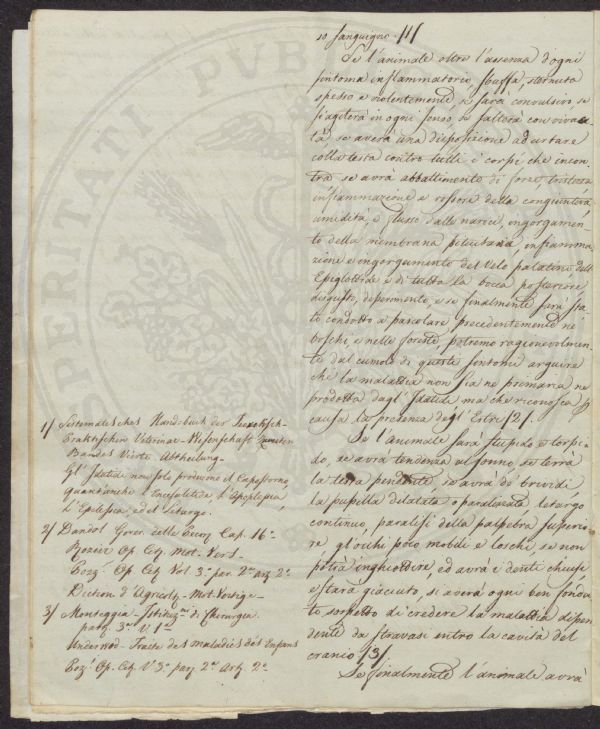 to sanguigno /1/
Se l'animale oltre l'assenza d'ogni
sintoma inflammatorio, sbuffa, sternuta
spesso e violentemente, si farà convulsivo, se
s'agiterà in ogni senso, se salterà con vivaci-
tà, se averà una disposizione ad urtare
colla testa contro tutti i corpi che incon-
tra se avrà abbattimento di forze, tristezza
infiammazione e rossore della congiuntiva,
umidità, e flusso dalle narici, ingorgamen-
to della membrana pituitaria, infiamma-
zione e ingorgamento del Velo palatino dell'
Epiglottide e di tutta la bocca posteriore
disgusto, deperimento, e se finalmente sarà sta-
to condotto a pascolare precedentemente ne'
boschi, e nelle foreste, potremo ragionevolmen-
te dal cumolo di questi sintomi arguire
che la malattia non sia nè primaria nè
prodotta dagl'Idatide ma che riconosca p
causa la presenza degl'Estri /2/.
Se l'animale sarà stupido e torpi-
do, se avrà tendenza al sonno, se terrà
la testa pendente, se avrà de' brividi
la pupilla dilatata o paralizzata letargo
continuo, paralisi della palpebra superio-
re gl'occhi poco mobili e loschi se non
potrà inghiottire, ed avrà i denti chiusi
e starà giaciuto, si averà ogni ben fonda-
to sospetto di credere la malattia dipen
dente da stravasi entro la cavità del
cranio /3/.
Se finalmente l'animale avrà
1/ Sistematisches Handbuch der Teoretisch-
Praktischen Veterinae-Wisenschaft
Bandes Vierte Abtheilung-
Gl'Idatide non solo producono il Capostorno,
quant'anche l'Encefalitide l'Apoplesia,
l'Epilessia, ed il Letargo.
2/ Dandol Gover. delle Pecore Cap. 16°
Rozier Op. Cit. Mot. Vers-
Bozz. Op. Cit. Vol 3° par. 2da art. 2°
Diction d'Agricolt-Mot-Vertige-
3/ Monteggia-Istituz.ni di Chirurgia
part 3a V. 1°
Underwod-Traite des maladies des Enfans
Boz. Op. Cit. V 3° part 2da Art. 2°